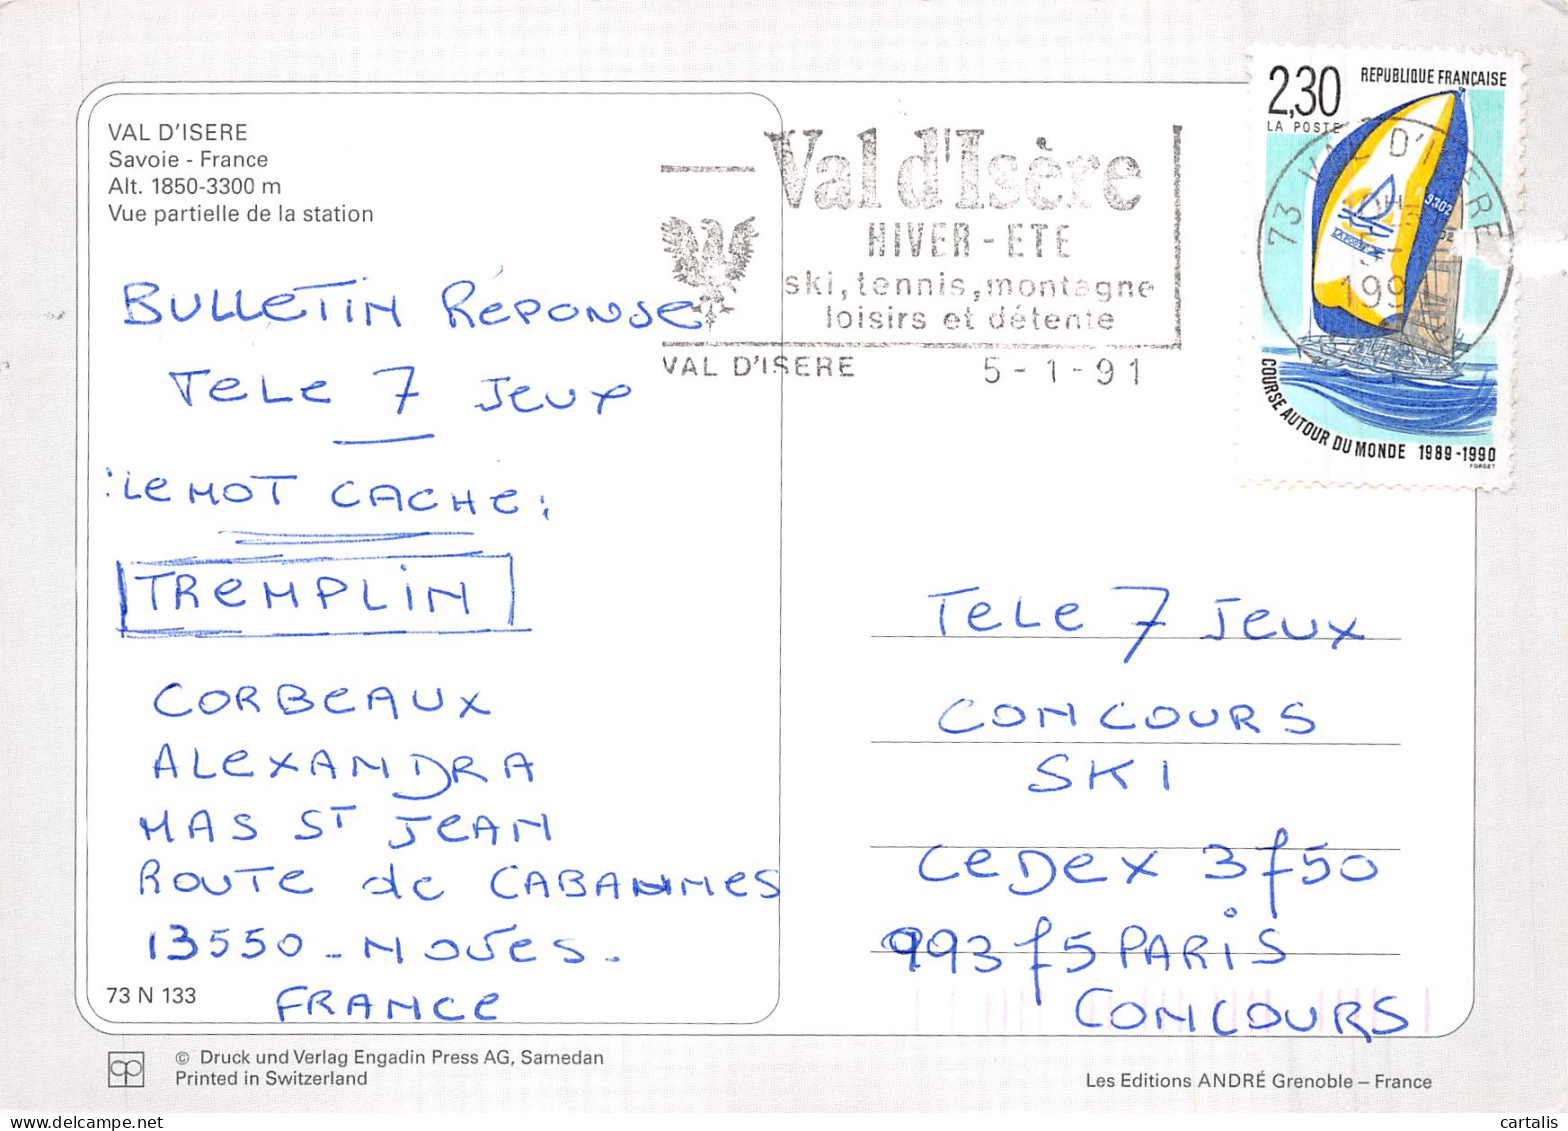 VAL D'ISERE
Savoie - France
Alt. 1850-3300 m
Vue partielle de la station
Val d'Isère
HIVER - ETE
ski, tennis, montagne
loisirs et détente
VAL D'ISERE 5 - 1 - 91
2,30 REPUBLIQUE FRANÇAISE
LA POSTE
73 VAL D'ISERE
LA POSTE
COURSE AUTOUR DU MONDE 1989-1990
FORGET
BULLETIN RÉPONSE
TELE 7 JEUX
: LE MOT CACHE :
TREMPLIN
CORBEAUX
ALEXANDRA
MAS ST JEAN
ROUTE de CABANNES
13550 - NOVES.
FRANCE
TELE 7 JEUX
CONCOURS
SKI
CEDEX 3750
99375 PARIS
CONCOURS
73 N 133
© Druck und Verlag Engadin Press AG, Samedan
Printed in Switzerland
Les Editions ANDRÉ Grenoble – France
cartalis